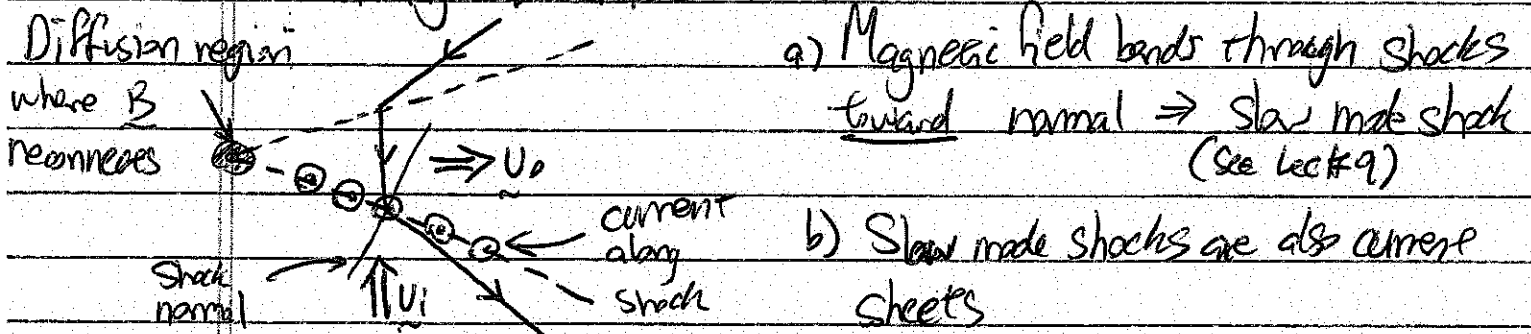 Diffusion region
where B
reconnects
⇒ U₀
current
along
shock
Shock
normal
Ui
a) Magnetic field bends through shocks
toward normal ⇒ slow mode shock
(See Lec#9)
b) Slow mode shocks are also current
sheets